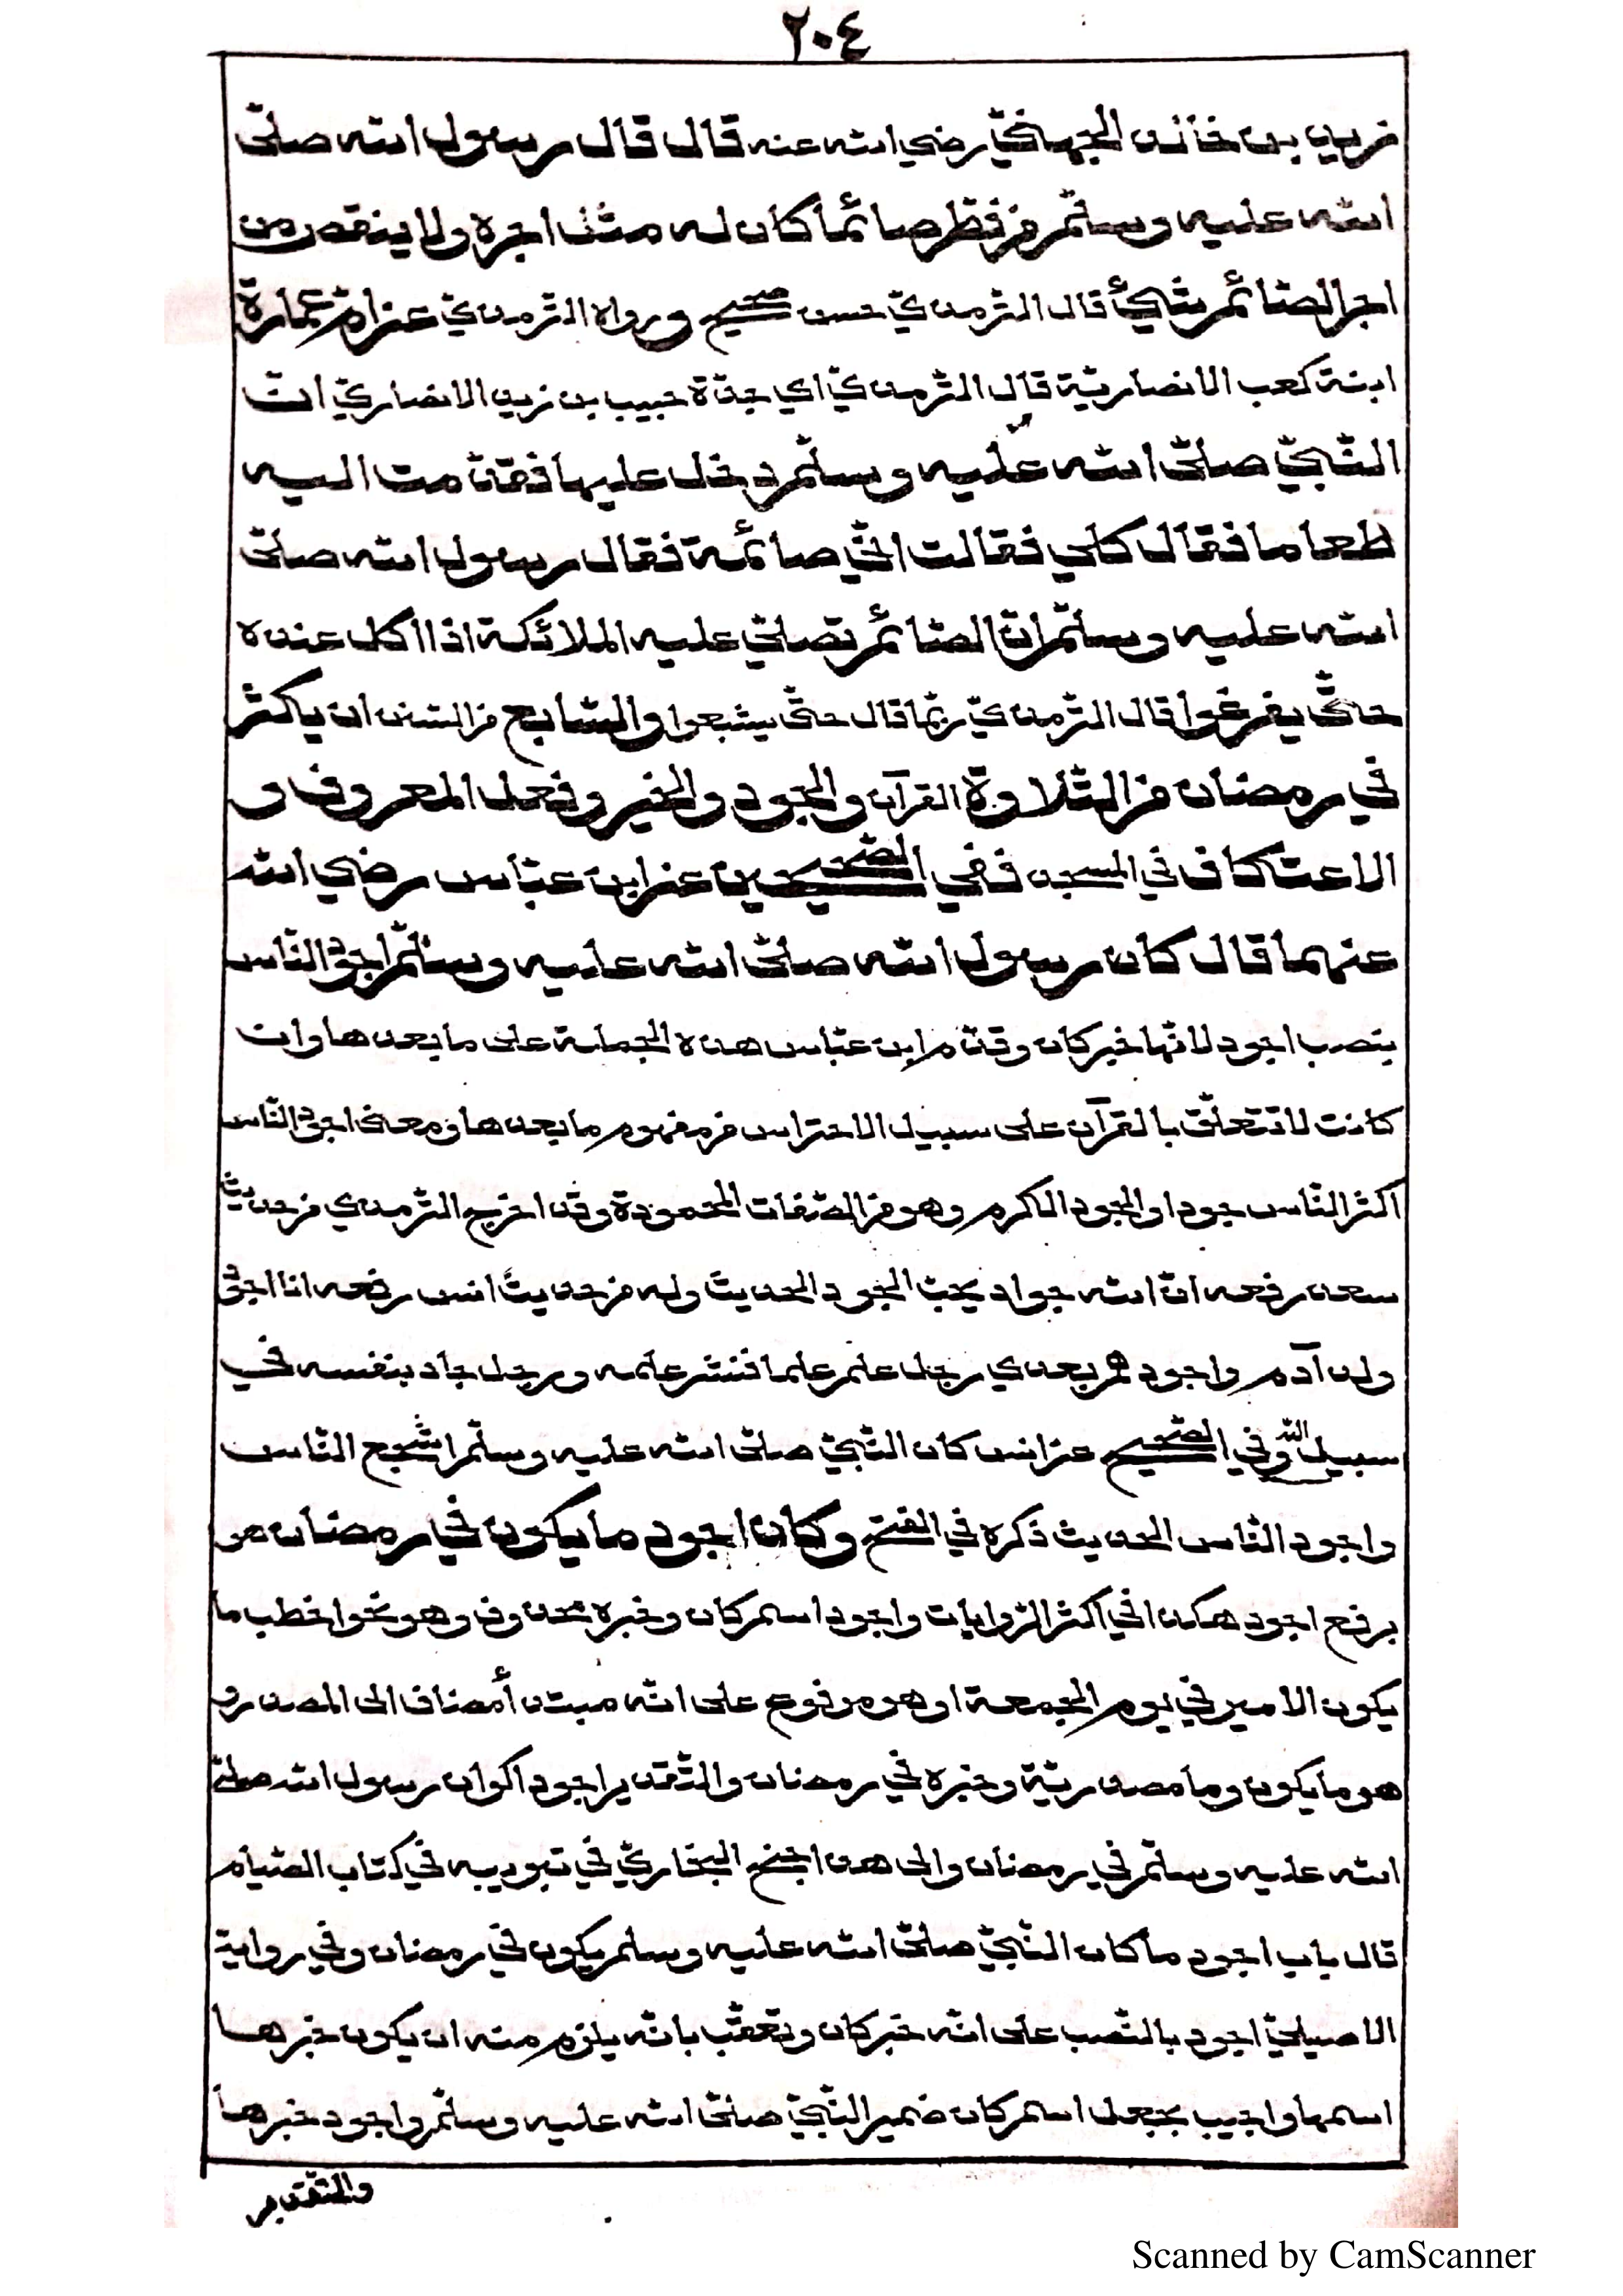 ٢٠٤
زيد بن خالد الجهني رضي الله عنه قال قال رسول الله صلّى
الله عليه وسلّم من فطر صائما كان له مثل اجره ولا ينقص من
اجر الصّائم شيئ قال الترمذي حسن صحيح ورواه الترمذي عن ام عمارة
ابنة كعب الانصاريّة قال الترمذي اي جدّة حبيب بن زيد الانصاري انّ
النّبيّ صلّى الله عليه وسلّم دخل عليها فقدّمت اليه
طعاما فقال كلي فقالت انّي صائمة فقال رسول الله صلّى
الله عليه وسلّم انّ الصّائم تصلّي عليه الملائكة اذا اكل عنده
حتّى يفرغوا قال الترمذي ربّما قال حتّى يشبعوا والسّابع من السّنن ان يكثر
في رمضان من التّلاوة القرآن والجود والخير وفعل المعروف و
الاعتكاف في المسجد ففي الصّحيحين عن ابن عبّاس رضي الله
عنهما قال كان رسول الله صلّى الله عليه وسلّم اجود النّاس
بنصب اجود لانّها خبر كان وقدّم ابن عبّاس هذه الجملة على ما بعدها وان
كانت لا تتعلّق بالقرآن على سبيل الاحتراس من مفهوم ما بعدها ومعنى اجود النّاس
اكثر النّاس جودا والجود الكرم وهو من الصّفات المحمودة وقد اخرج الترمذي من حديث
سعد رفعه انّ الله جواد يحبّ الجود الحديث وله من حديث انس رفعه انا اجود
ولد آدم واجودهم بعدي رجل علم علما فنشر علمه ورجل جاد بنفسه في
سبيل الله وفي الصّحيح عن انس كان النّبيّ صلّى الله عليه وسلّم اشجع النّاس
واجود النّاس الحديث ذكره في الفتح وكان اجود ما يكون في رمضان هو
برفع اجود هكذا في اكثر الرّوايات واجود اسم كان وخبره محذوف وهو نحو اخطب ما
يكون الامير في يوم الجمعة او هو مرفوع على انّه مبتدأ مضاف الى المصدر و
هو ما يكون وما مصدريّة وخبره في رمضان والتّقدير اجود اكوان رسول الله صلّى
الله عليه وسلّم في رمضان والى هذا جنح البخاريّ في تبويبه في كتاب الصّيام
قال باب اجود ما كان النّبيّ صلّى الله عليه وسلم يكون في رمضان وفي رواية
الاصيليّ اجود بالنّصب على انّه خبر كان وتعقّب بانّه يلزم منه ان يكون خبرها
اسمها واجيب بجعل اسم كان ضمير النّبيّ صلّى الله عليه وسلّم واجود خبرها
والتّقدير
Scanned by CamScanner